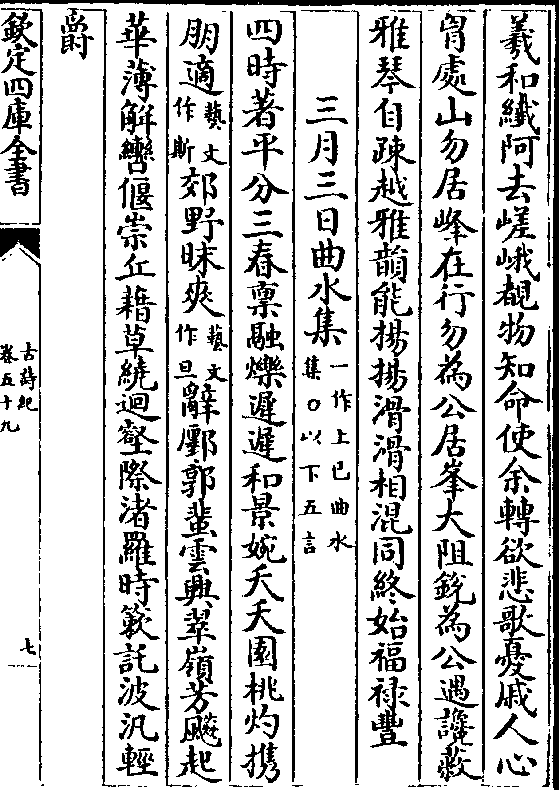 羲和纖阿去嵯峨覩物知命使余轉欲悲歌憂戚人心
胷處山勿居峰在行勿為公居峯大阻銳為公遇讒蔽
雅琴自疎越雅韻能揚揚滑滑相混同終始福禄豐
三月三日曲水集一作上巳曲水集○以下五言
四時著平分三春禀融爍遲遲和景婉夭夭園桃灼携
朋適藝文作斯郊野昧爽藝文作旦辭鄽郭蜚雲興翠嶺芳飈起
華薄解轡偃崇丘藉草繞迴壑際渚羅時蔌託波汎輕
爵
欽定四庫全書
古詩紀
卷五十九
七